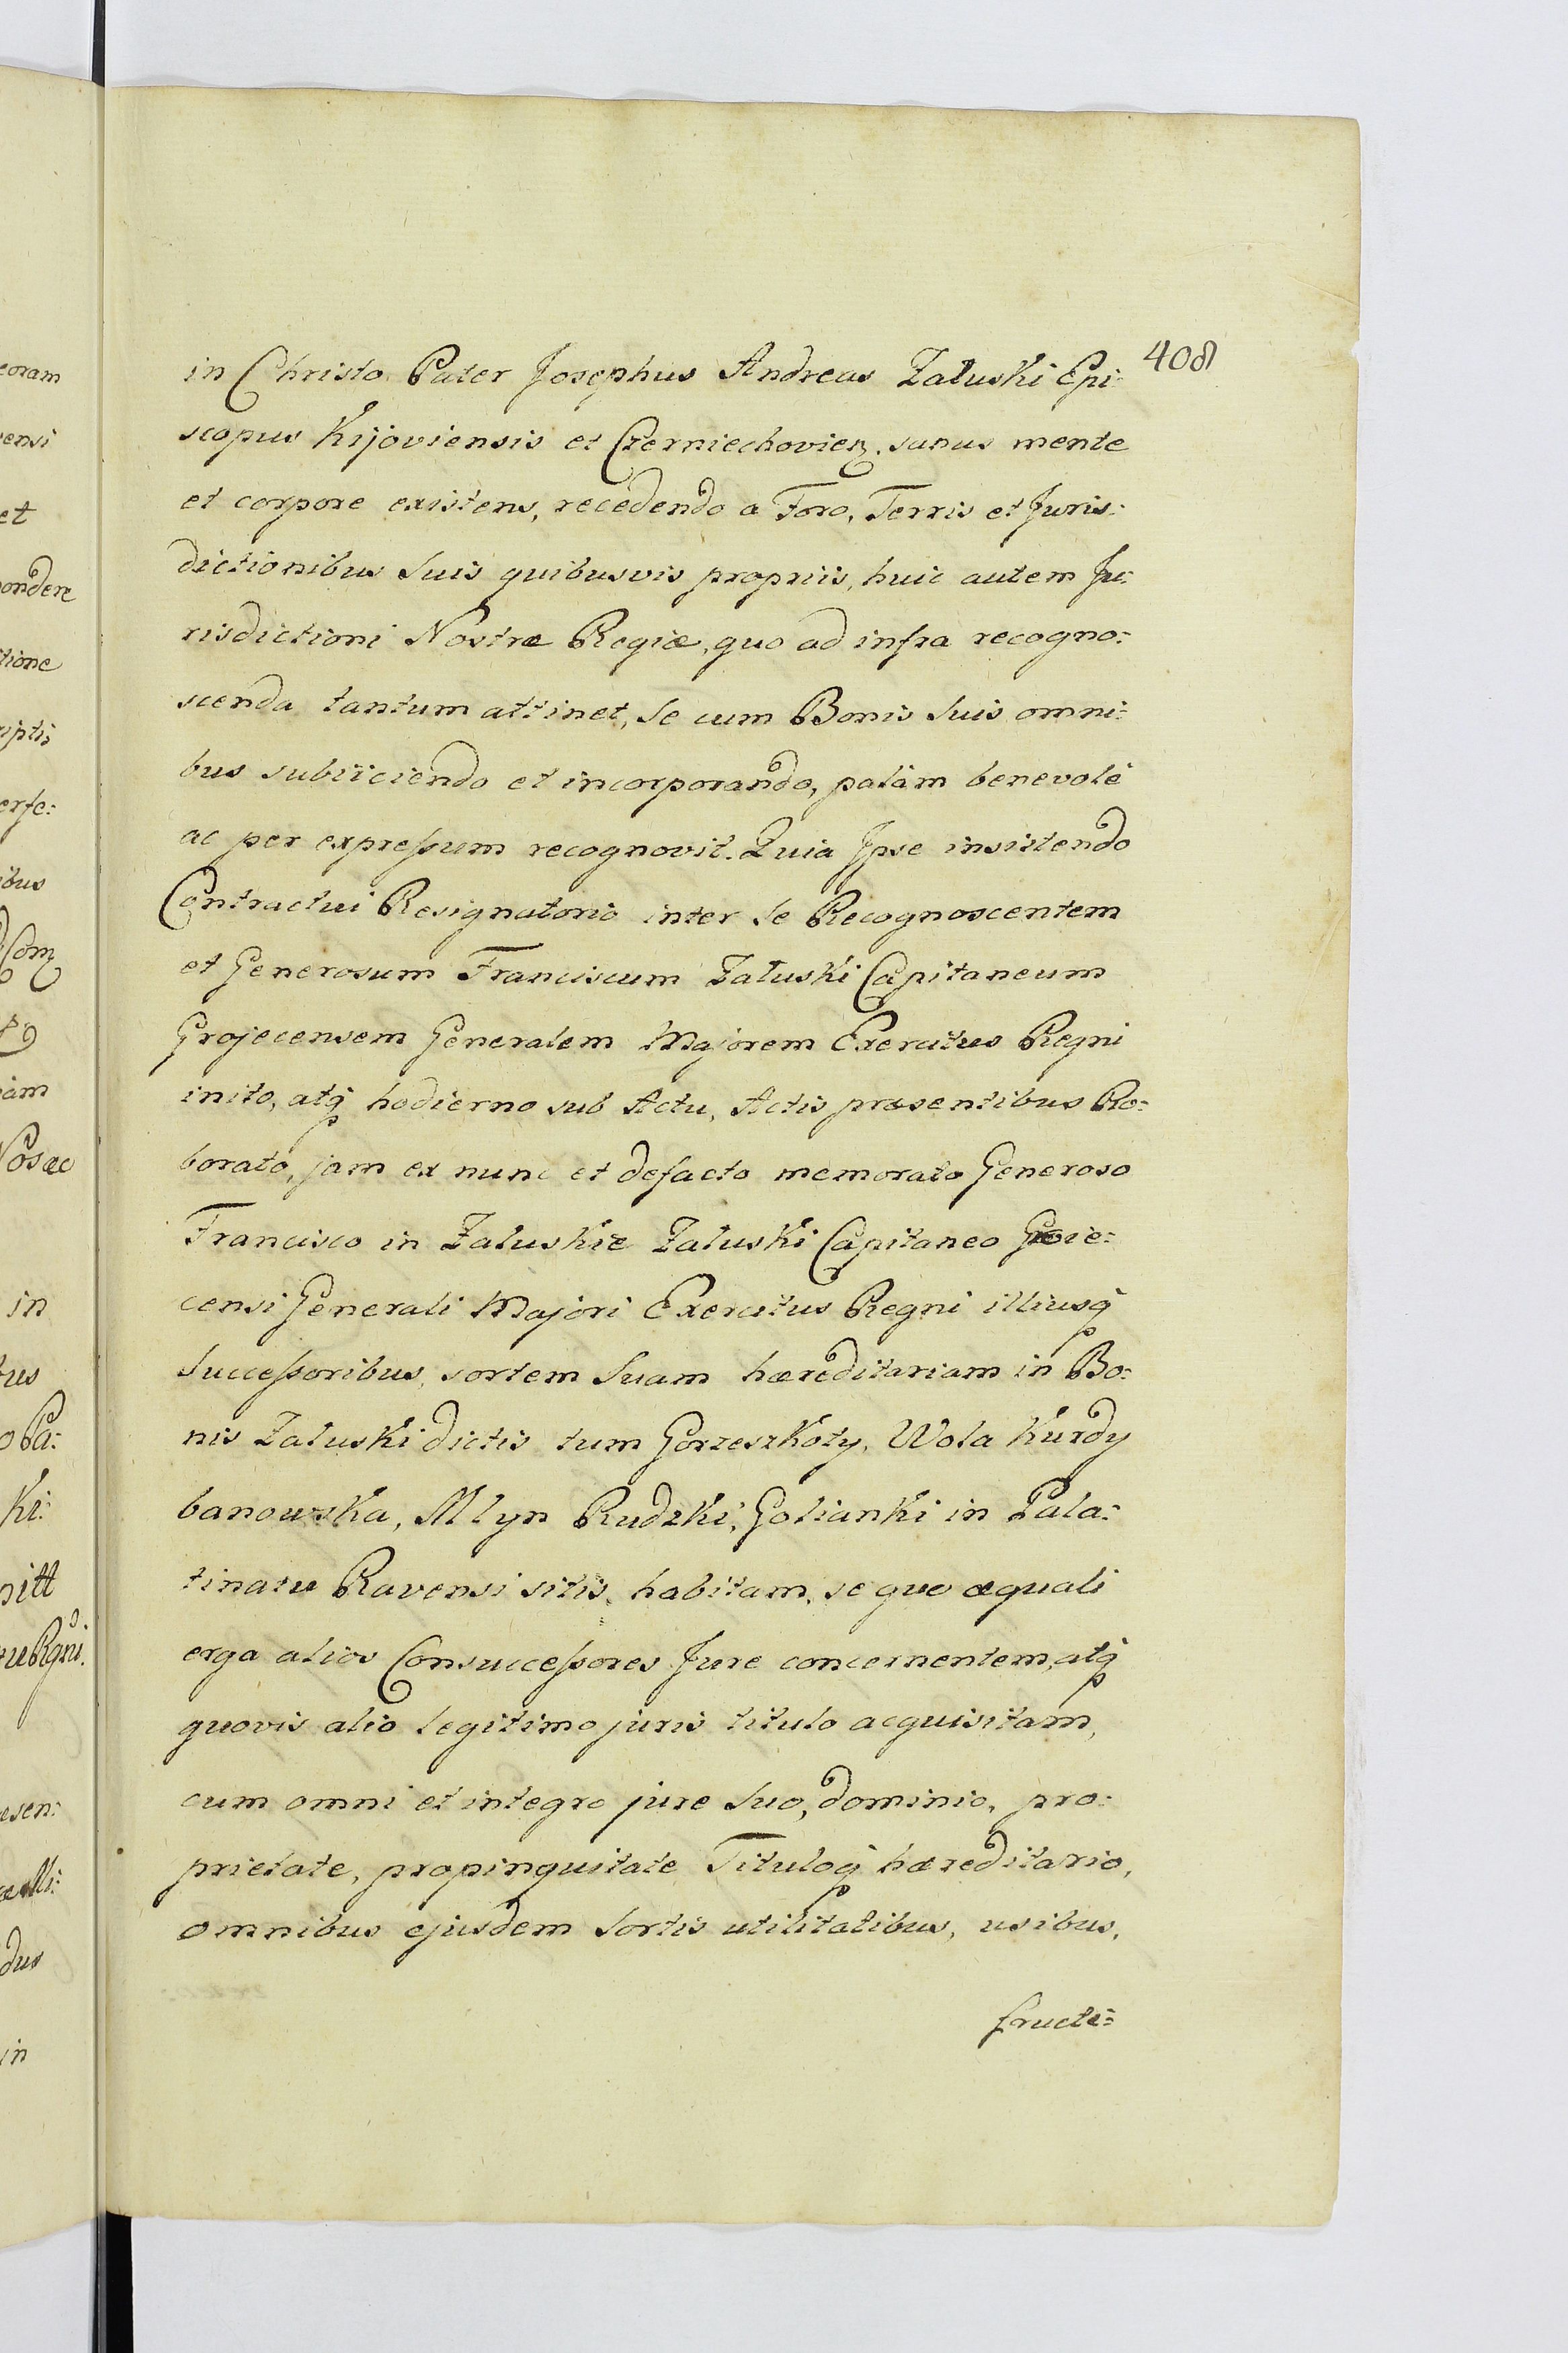 408
in Christo Pater Josephus Andreas Załuski Epi:
scopus Kijoviensis et Czerniechovien. sanus mente
et corpore existens, recedendo a Foro, Terris et Juris:
dictionibus Suis quibusvis propriis, huic autem Ju:
risdictioni Nostræ Regiæ, quo ad infra recogno:
scenda tantum attinet, Se cum Bonis Suis omni:
bus subiiciendo et incorporando, palàm benevolè
ac per expressum recognovit. Quia Ipse insistendo
Contractui Resignatorio inter Se Recognoscentem
et Generosum Franciscum Załuski Capitaneum
Grojecensem Generalem Majorem Exercitus Regni
inito, atq hodierno sub Actu, Actis præsentibus Ro:
borato, jam ex nunc et defacto memorato Generoso
Francisco in Załuskie Załuski Capitaneo Groie:
censi Generali Majori Exercitus Regni illiusq
Successoribus, sortem Suam hæreditariam in Bo:
nis Załuski dictis tum Gorzeszkoły, Wola Kurdy
banowska, Młyn Rudzki, Golianki in Pala:
tinatu Ravensi sitis, habitam, se que æquali
erga alios Consuccessores Jure concernentem, atq
quovis alio legitimo juris titulo acquisitam,
cum omni et integro jure Suo, dominio, pro:
prietate, propinquitate Tituloq hæreditario,
omnibus ejusdem Sortis utilitatibus, usibus,
fructi:
eoram
ensi
et
ondere
tione
iptis
erfe:
ibus
iam
in
bus
o Pa:
Ki:
nitt
esen:
dus
in